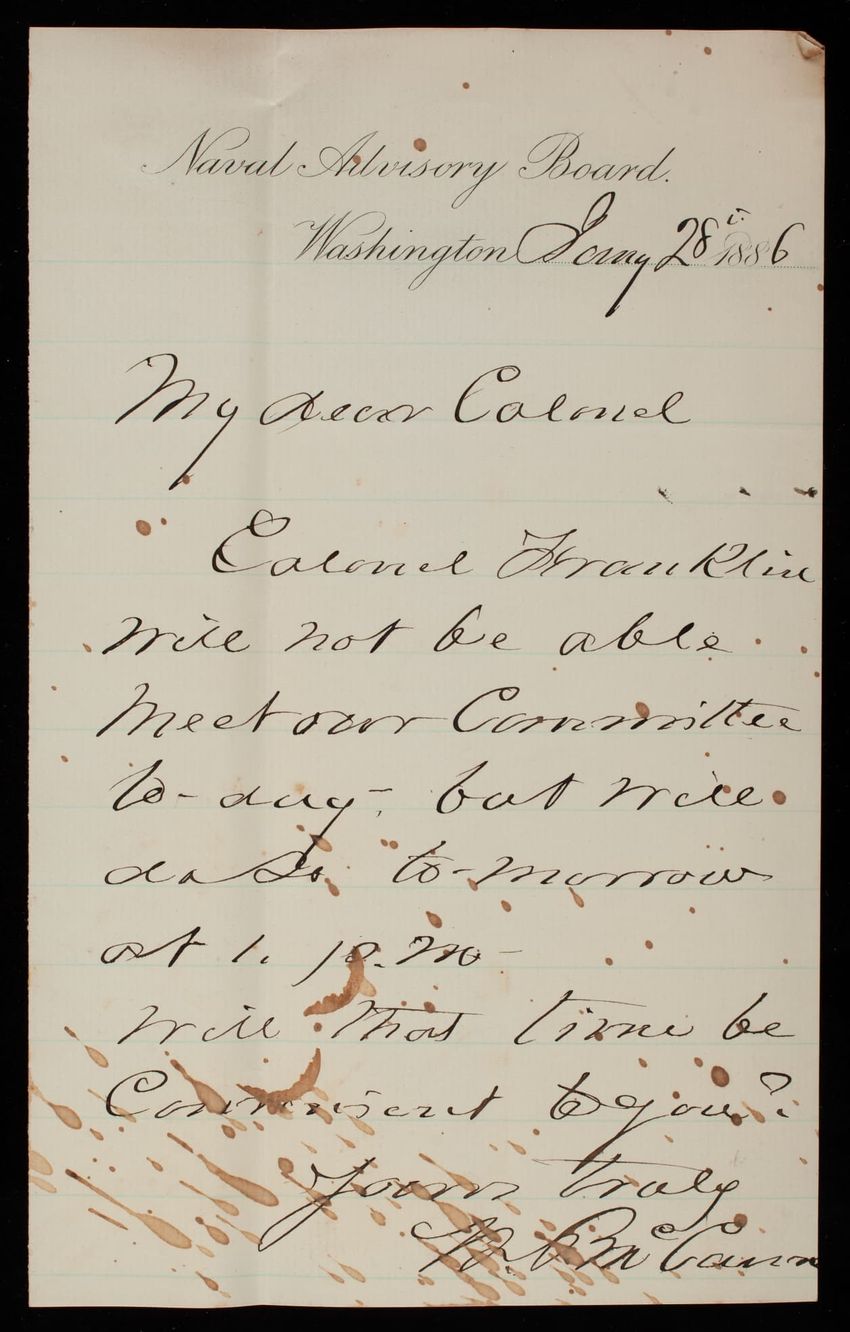 Naval Advisory Board.
Washington Jany 28 1886
My dear Colonel
Colonel Franklin
will not be able
meet our Committee
to-day, but will
do so to-morrow
at 1. p.m-
Will that time be
Convenient to you?
Yours truly
McCann